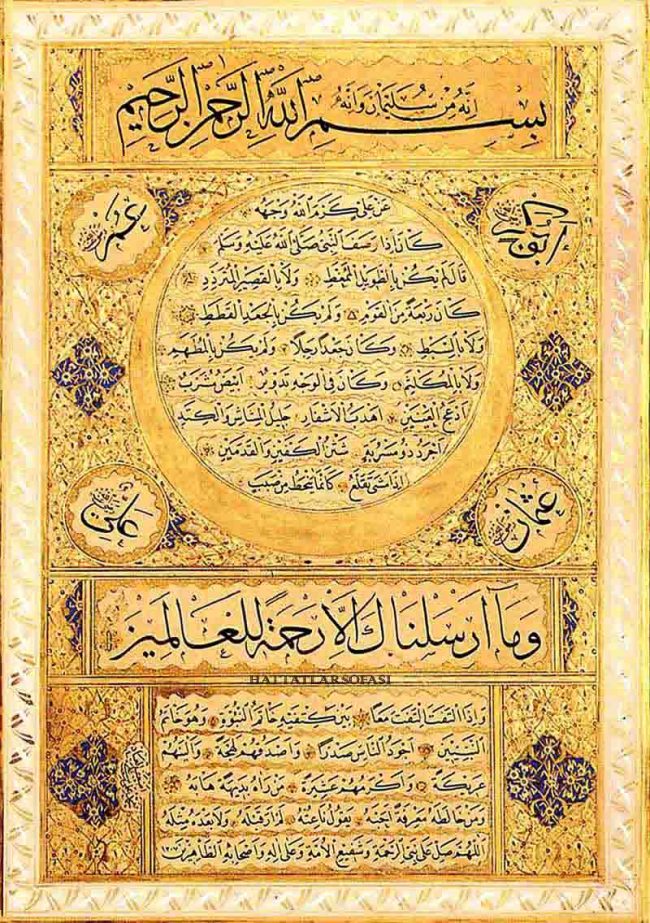 انه من سليمان وانه
بسم الله الرحمن الرحيم
ابوبكر
عمر
عن علي كرم الله وجهه
كان اذا وصف النبي صلى الله عليه وسلم
قال لم يكن بالطويل الممغط ولا بالقصير المتردد
كان ربعة من القوم ولم يكن بالجعد القطط
ولا بالسبط وكان جعدا رجلا ولم يكن بالمطهم
ولا بالمكلثم وكان في الوجه تدوير ابيض مشرب
ادعج العينين اهدب الاشفار جليل المشاش والكتد
اجرد ذو مسربة شثن الكفين والقدمين
اذا مشى تقلع كانما ينحط من صبب
عثمان
علي
وما ارسلناك الا رحمة للعالمين
HATTATLAR SOFASI
واذا التفت التفت معا بين كتفيه خاتم النبوة وهو خاتم
النبيين اجود الناس صدرا واصدقهم لهجة والينهم
عريكة واكرمهم عشيرة من راه بديهة هابه
ومن خالطه معرفة احبه يقول ناعته لم ار قبله ولا بعده مثله
اللهم صل على نبي الرحمة وشفيع الامة وعلى اله واصحابه الطاهرين